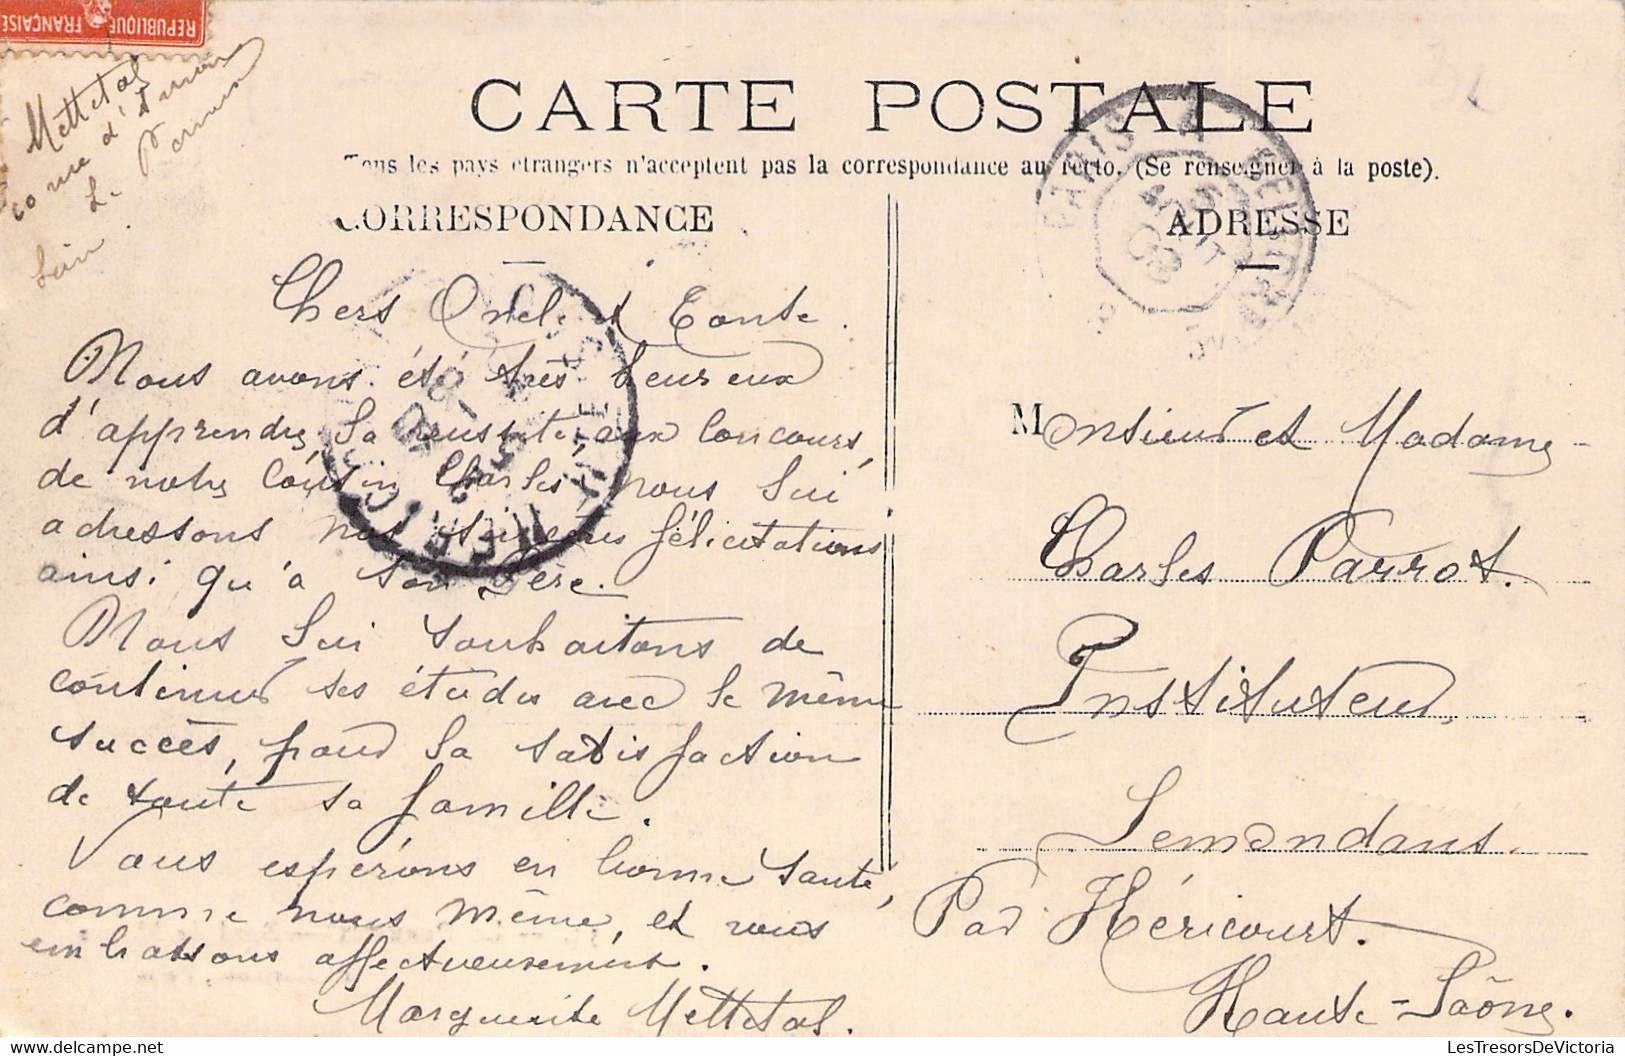 REPUBLIQUE FRANÇAISE
Mettetal
rue d'
Le
CARTE POSTALE
Tous les pays étrangers n'acceptent pas la correspondance au recto. (Se renseigner à la poste).
CORRESPONDANCE
ADRESSE
PARIS
HERICOURT
Chers Oncle et Tante.
Nous avons été très heureux
d'apprendre la réussite, aux Concours,
de notre Cousin Charles, nous lui
adressons nos sincères félicitations
ainsi qu'à son Père.
Nous lui souhaitons de
continuer ses études avec le même
succès, pour la satisfaction
de toute sa famille.
Vous espérons en bonne santé,
comme nous même, et vous
embrassons affectueusement.
Marguerite Mettetal.
Monsieur et Madame
Charles Parrot.
Instituteur,
Semondans.
Par Héricourt.
Haute-Saône.
LesTresorsDeVictoria.com